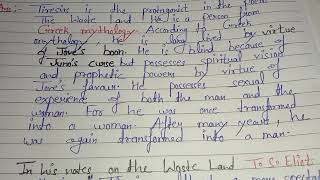 Ans:- Tiresias is the protagonist in the Poem
The Waste Land. He is a person from
Greek mythology. According to Greek
mythology, he long lived by virtue
of Jove's boon. He is blind because of
Juno's curse but possesses spiritual vision
and prophetic powers by virtue of
Jove's favour. He possesses sexual
experience of both the man and the
woman. For he was once transformed
into a woman. After many years, he
was again transformed into a man.
In his notes on the Waste Land T.S. Eliot